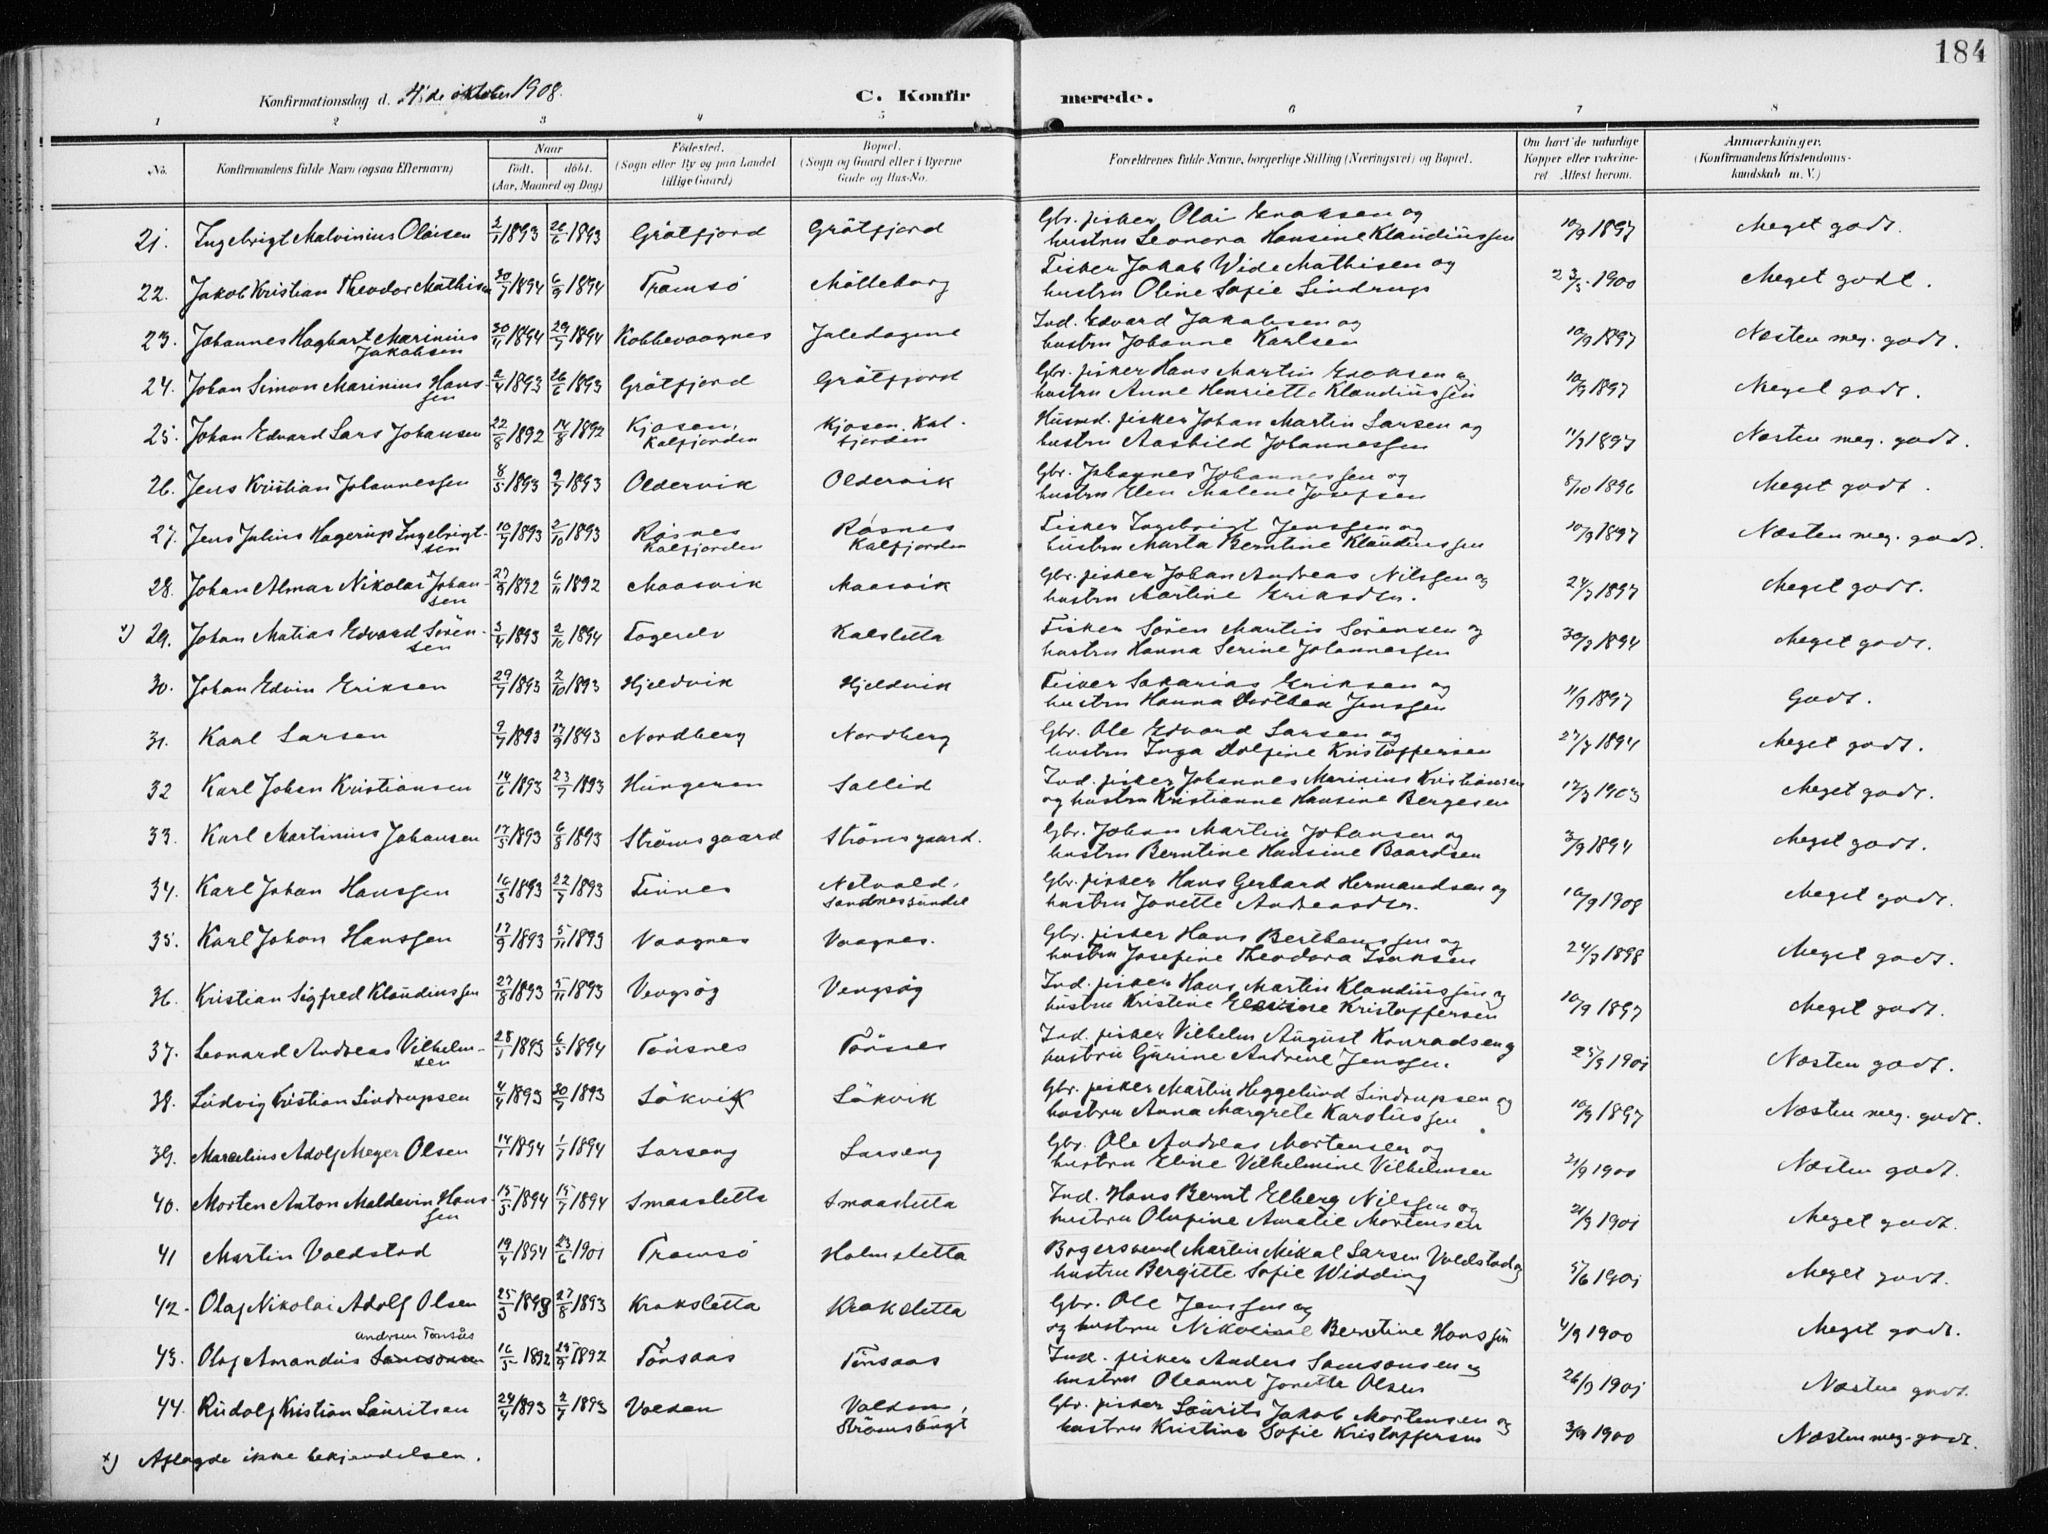 184
Konfirmationsdag d. 4de oktober 1908.
C. Konfirmerede.
1 2 3 4 5 6 7 8
No. Konfirmandens fulde Navn (ogsaa Efternavn) Naar født. døbt. (Aar, Maaned og Dag) Fødested. (Sogn eller By og paa Landet tillige Gaard) Bopæl. (Sogn og Gaard eller i Byerne Gade og Hus-No. Forældrenes fulde Navne, borgerlige Stilling (Næringsvei) og Bopæl. Om havt de naturlige Kopper eller vakcineret Attest herom. Anmærkninger. (Konfirmandens Kristendomskundskab m. V.)
21. Ingebrigt Malvinius Olaisen 2/1 1893 26/6 1893 Grötfjord Grötfjord Gbr. fisker Olai Eraksen og
hustru Leonora Hansine Klaudiussen 10/9 1897 Meget godt.
22. Jakob Kristian Theodor Mathisen 30/7 1894 6/9 1894 Tromsö Mölleborg Fisker Jakob Wide Mathisen og
hustru Oline Sofie Lindrup 23/5 1900 Meget godt.
23. Johannes Hagbart Marinius
Jakobsen 30/4 1894 29/7 1894 Kobbevaagnes Ind. Edvard Jakobsen og
hustru Johanne Karlsen 10/9 1897 Næsten meg. godt.
24. Johan Simon Marinius Hans-
sen 2/4 1893 26/6 1893 Grötfjord Grötfjord Gbr. fisker Hans Martin Eraksen og
hustru Anne Henriette Klaudiussen 10/9 1897 Meget godt.
25. Johan Edvard Lars Johansen 22/8 1892 14/8 1892 Kjosen, Kalfjorden Kjosen. Kal-
fjorden Husmd. fisker Johan Martin Larsen og
hustru Aashild Johannessen 11/9 1897 Næsten meg. godt.
26. Jens Kristian Johannessen 8/5 1893 9/7 1893 Oldervik Oldervik Gbr. Johannes Johannessen og
hustru Elen Malene Josefsen 8/10 1896 Meget godt.
27. Jens Julius Hagerup Ingebrigt-
sen 10/7 1893 2/10 1893 Røsnes
Kalfjorden Røsnes
Kalfjorden Fisker Ingebrigt Jenssen og
hustru Marta Berntine Klaudiussen 10/9 1897 Næsten meg. godt.
28. Johan Almar Nikolai Johan-
sen 27/9 1892 6/11 1892 Maasvik Maasvik Gbr. fisker Johan Andreas Nilssen og
hustru Martine Eriksdtr. 24/9 1897 Meget godt.
x) 29. Johan Matias Edvard Sören-
sen 3/4 1893 2/10 1894 Fagerelv Kalsletta Fisker Sören Martin Sörensen og
hustru Hanna Serine Johannessen 30/9 1894 Meget godt.
30. Johan Edvin Eriksen 29/7 1893 2/10 1893 Hjeldvik Hjeldvik Fisker Sakarias Eriksen og
hustru Hanna Dorthea Jenssen 11/9 1897 Godt.
31. Karl Larsen 9/7 1893 17/9 1893 Nordberg Nordberg Gbr. Ole Edvard Larsen og
hustru Inga Dolfine Kristoffersen 27/7 1894 Meget godt.
32 Karl Johan Kristiansen 14/6 1893 23/7 1893 Hungeren Sollid Ind. fisker Johannes Marinius Kristiansen
og hustru Kristianne Hansine Bergesen 17/3 1903 Meget godt.
33. Karl Martinius Johansen 17/5 1893 6/8 1893 Strömsgaard Strömsgaard. Gbr. Johan Martin Johansen og
hustru Berntine Hansine Baardsen 3/9 1894 Meget godt.
34. Karl Johan Hanssen 16/3 1893 22/7 1893 Finnes Sandnessundet Gbr. fisker Hans Gerhard Hermandsen og
hustru Jonette Andreasdtr. 10/9 1908 Meget godt.
35. Karl Johan Hanssen 17/9 1893 5/11 1893 Vaagnes Vaagnes. Gbr. fisker Hans Berthenssen og
hustru Josefine Theodora Isaksen 24/9 1898 Meget godt.
36. Kristian Sigfred Klaudiussen 27/8 1893 5/11 1893 Vengsög Vengsög Ind. fisker Hans Martin Klaudiussen og
hustru Kristine Kristoffersen 10/9 1897 Meget godt.
37. Leonard Andreas Vilhelm-
sen 28/1 1893 6/5 1894 Tönsnes Tönsnes Ind. fisker Vilhelm August Konradsen og
hustru Gurine Andrine Jenssen. 25/9 1901 Næsten godt.
38. Ludvig Kristian Lindrupsen 4/4 1893 30/7 1893 Lökvik Lökvik Gbr. fisker Martin Heggelund Lindrupsen og
hustru Anna Margrete Karolussen 10/9 1897 Næsten meg. godt.
39. Marcelius Adolf Meyer Olsen 14/1 1894 1/7 1894 Larseng Larseng Gbr. Ole Andreas Mortensen og
hustru Eline Vilhelmine Vilhelmsen 21/9 1900 Næsten godt.
40. Morten Anton Maldevin Hans-
sen 15/5 1894 15/7 1894 Smaasletta Smaasletta Ind. Hans Bernt Elberg Nilssen og
hustru Olufine Amalie Mortensen 21/9 1901 Meget godt.
41 Martin Voldstad 19/4 1894 23/6 1901 Tromsö Holmsletta Bogersvend Martin Mikal Larsen Voldstad og
hustru Bergitte Sofie Widding 5/6 1901 Meget godt.
42. Olaf Nikolai Adolf Olsen 25/3 1893 27/8 1893 Kraksletta Kraksletta Gbr. Ole Jenssen og
og hustru Nikoline Berntine Hanssen 4/9 1900 Meget godt.
Andersen Tönsås
43. Olaf Amandus Samsonsen 16/5 1892 24/7 1892 Tönsaas Tönsaas Ind. fisker Anders Samsonsen og
hustru Oleanne Jonette Olsen 26/9 1901 Næsten godt.
44. Rudolf Kristian Lauritsen 24/4 1893 2/7 1893 Volden Volden,
Strömsbugt Gbr. fisker Laurits Jakob Mortensen og
hustru Kristine Sofie Kristoffersen 3/9 1900 Næsten meg. godt.
x) Aflagde ikke bekjendelsen.